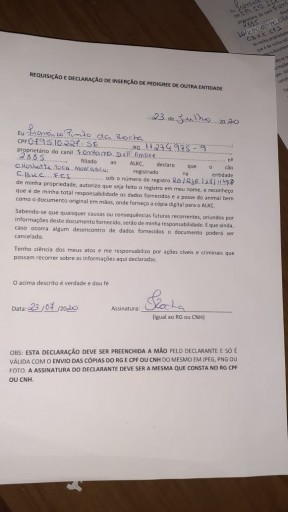 REQUISIÇÃO E DECLARAÇÃO DE INSERÇÃO DE PEDIGREE DE OUTRA ENTIDADE
23 de Julho 2020
Eu da Rocha
CPF
proprietário do canil nº
2005 filiado ao ALKC, declaro que o cão
registrado na entidade
sob o número de registro
de minha propriedade, autorizo que seja feito o registro em meu nome, e reconheço
que é de minha total responsabilidade os dados fornecidos e a posse do animal bem
como o documento original em mãos, onde forneço a cópia digital para a ALKC.
Sabendo-se que quaisquer causas ou consequências futuras recorrentes, oriundos por
informações deste documento fornecido, serão de minha responsabilidade. E que ainda,
caso ocorra algum desencontro de dados fornecidos o documento poderá ser
cancelado.
Tenho ciência dos meus atos e me responsabilizo por ações cíveis e criminais que
possam recorrer sobre as informações aqui declaradas.
O acima descrito é verdade e dou fé
Data: 23/07/2020 Assinatura: Rocha
(Igual ao RG ou CNH)
OBS: ESTA DECLARAÇÃO DEVE SER PREENCHIDA A MÃO PELO DECLARANTE E SÓ É
VÁLIDA COM O ENVIO DAS CÓPIAS DO RG E CPF OU CNH DO MESMO EM JPEG, PNG OU
FOTO. A ASSINATURA DO DECLARANTE DEVE SER A MESMA QUE CONSTA NO RG CPF
OU CNH.